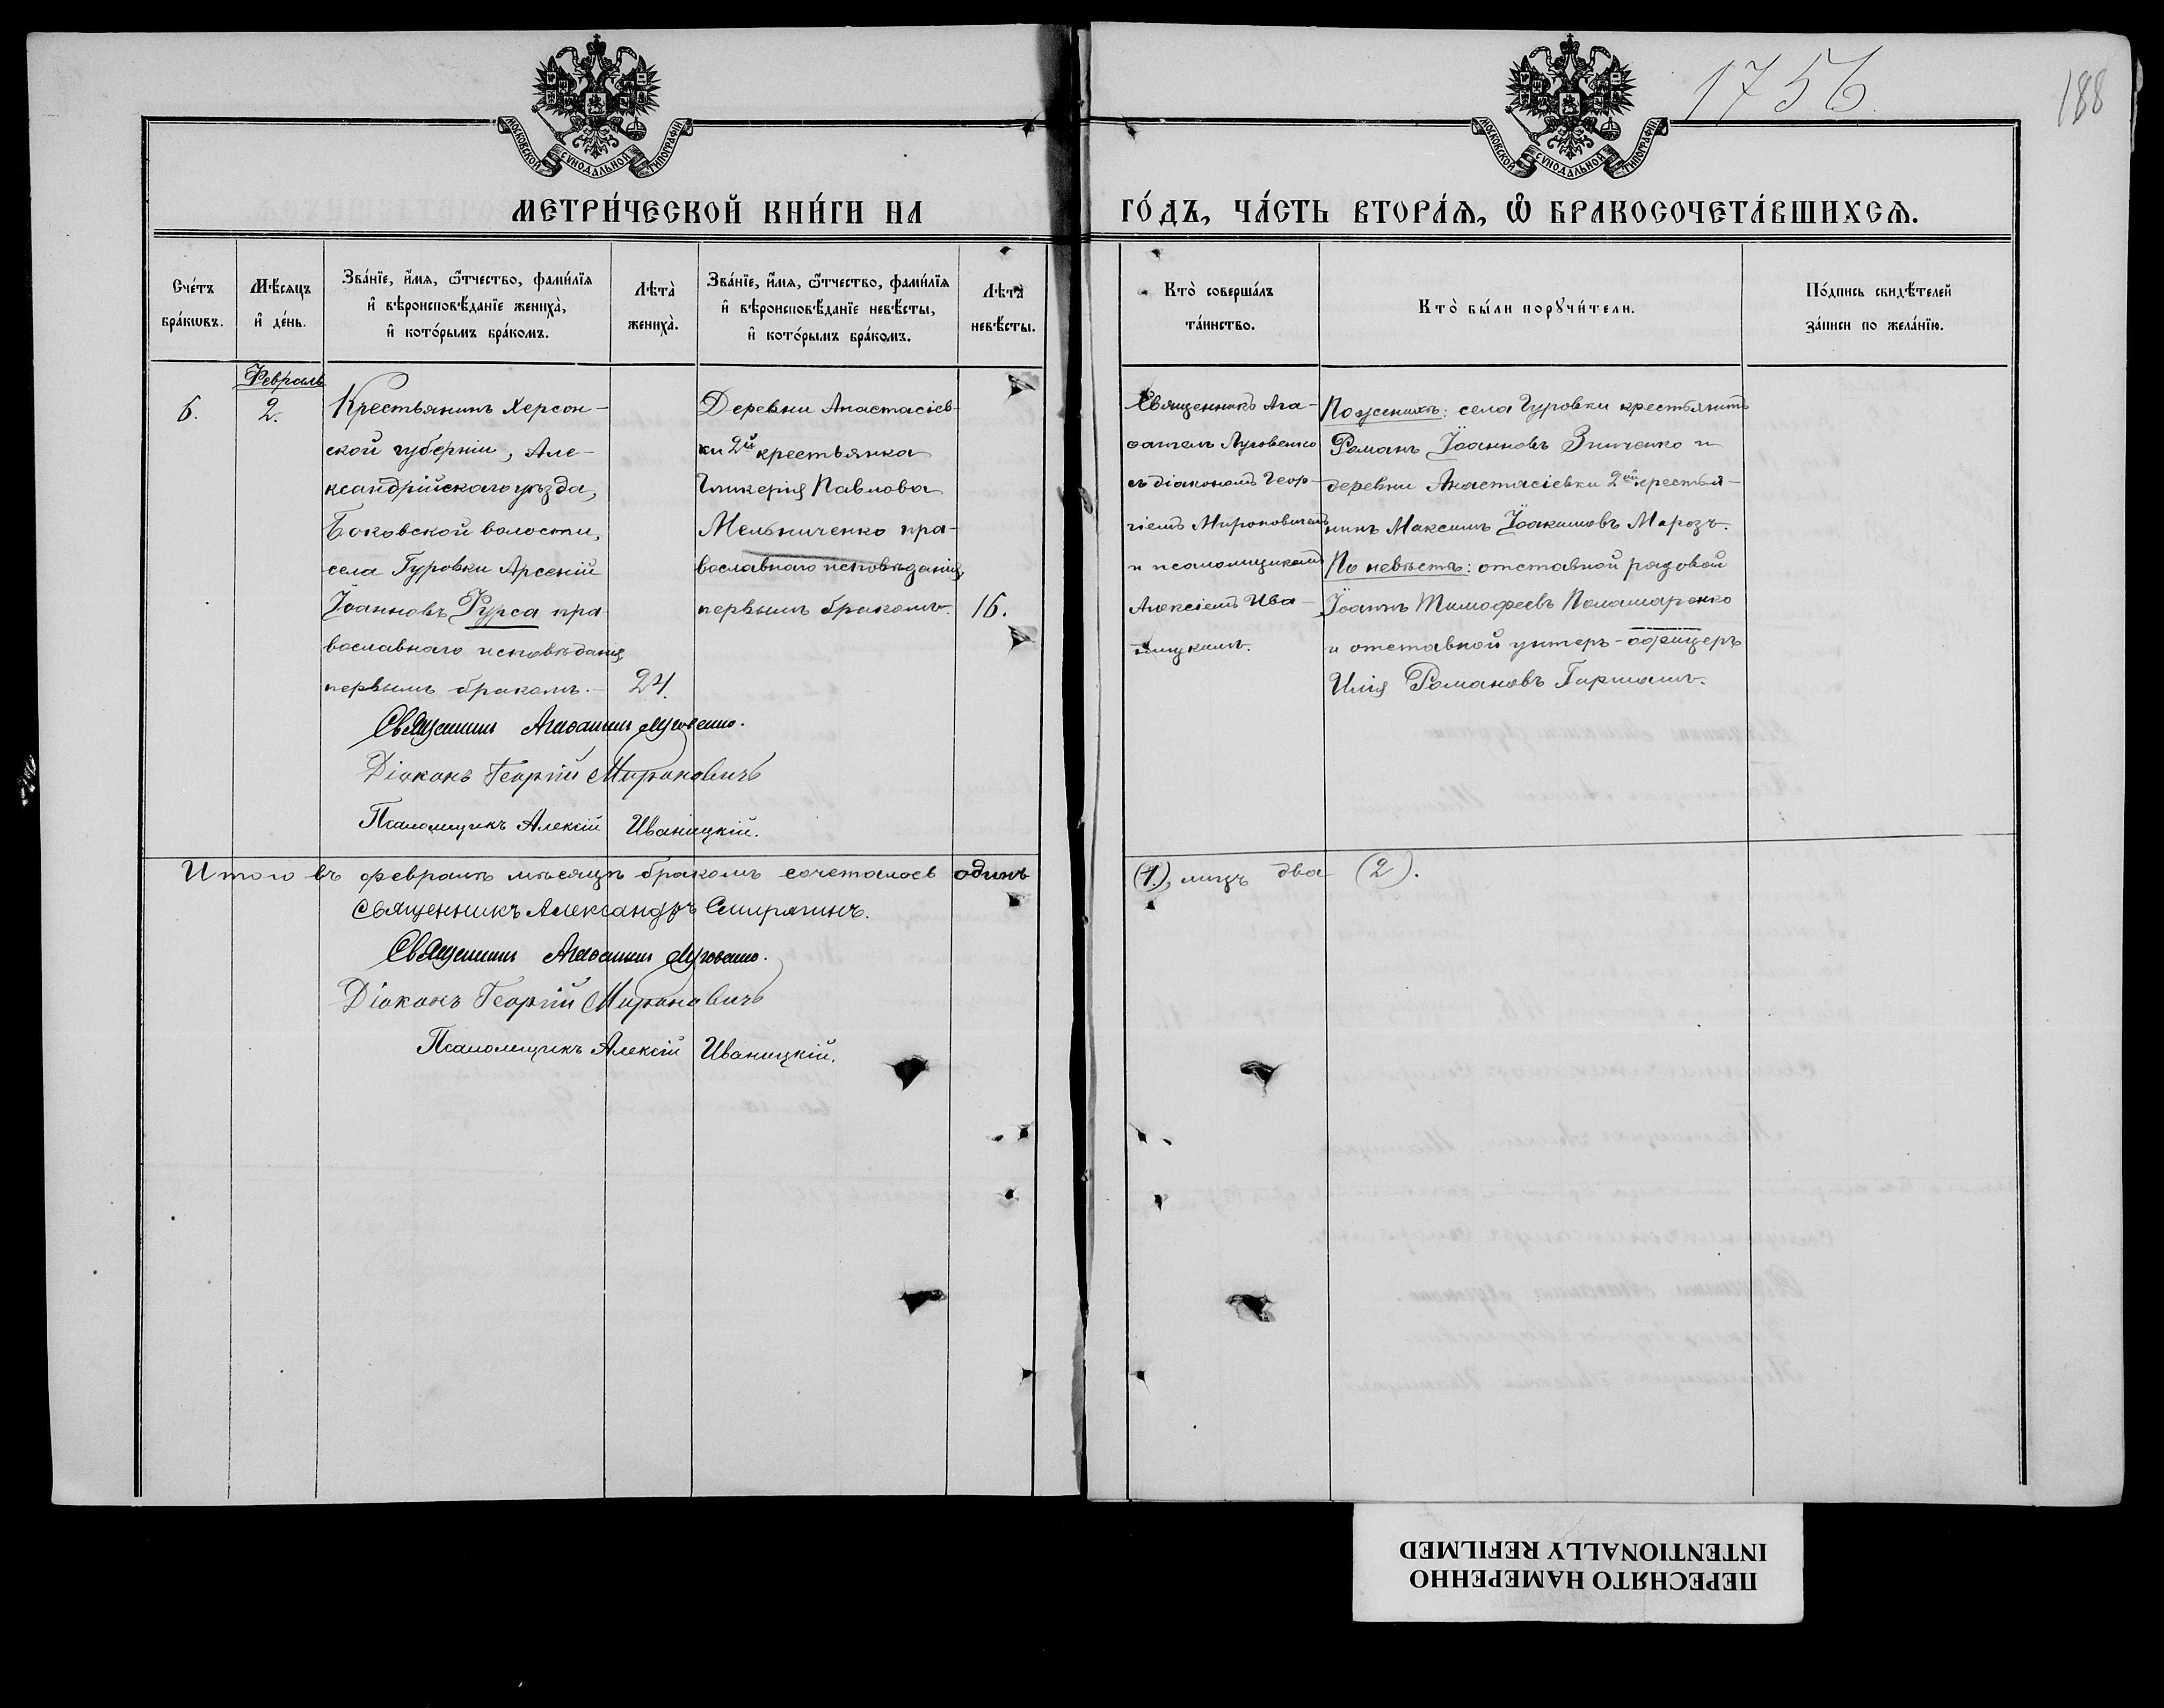 1756
188
МОСКОВСКОЙ СѴНОДАЛЬНОЙ ТИПОГРАФІИ
МОСКОВСКОЙ СѴНОДАЛЬНОЙ ТИПОГРАФІИ
МЕТРИ́ЧЕСКОЙ КНИ́ГИ НА
ГО́ДЪ, ЧА́СТЬ ВТОРА́Ѧ, Ѽ БРАКОСОЧЕТА́ВШИХСѦ.
Сче́тъ бра́кѡвъ.
Мѣ́сяцъ и҆ де́нь.
Зва́нїе, и҆́мя, ѻ҆́тчество, фами́лїя
и҆ вѣроисповѣ́данїе жениха̀,
и҆ кото́рымъ бра́комъ.
Лѣта̀ жениха̀.
Зва́нїе, и҆́мя, ѻ҆́тчество, фами́лїя
и҆ вѣроисповѣ́данїе невѣ́сты,
и҆ кото́рымъ бра́комъ.
Лѣта̀ невѣ́сты.
Кто̀ соверша́лъ
та́инство.
Кто̀ бы́ли порꙋчи́тели.
По́дпись свидѣ́телей
за́писи по жела́нїю.
Февраль
6.
2.
Крестьянинъ Херсон-
ской губерніи, Але-
ксандрійскаго уѣзда,
Боковской волости,
села Гуровки Арсеній
Іоанновъ Фурса пра-
вославнаго исповѣданія,
первымъ бракомъ.-
24.
Деревни Анастасіев-
ки 2й крестьянка
Гликерія Павлова
Мельниченко пра-
вославнаго исповѣданія,
первымъ бракомъ.
16.
Священникъ Ага-
ѳангелъ Луговенко
съ діакономъ Геор-
гіемъ Мироновичемъ
и псаломщикомъ
Алексіемъ Ива-
ницкимъ.
По женихѣ: села Гуровки крестьянинъ
Романъ Іоанновъ Зинченко и
деревни Анастасіевки 2й крестья-
нинъ Максимъ Іоакимовъ Морозъ.
По невѣстѣ: отставной рядовой
Іоаннъ Тимофеевъ Паламаренко
и отставной унтеръ-офицеръ
Илія Романовъ
Священникъ Агаѳангелъ Луговенко.
Діаконъ Георгій Мироновичъ
Псаломщикъ Алексій Иваницкій.
Итого въ февралѣ мѣсяцѣ бракомъ сочеталось одинъ (1.), лицъ два (2).
Священникъ Александръ Смирягинъ.
Священникъ Агаѳангелъ Луговенко.
Діаконъ Георгій Мироновичъ
Псаломщикъ Алексій Иваницкій.
ПЕРЕСНЯТО НАМЕРЕННО
INTENTIONALLY REFILMED